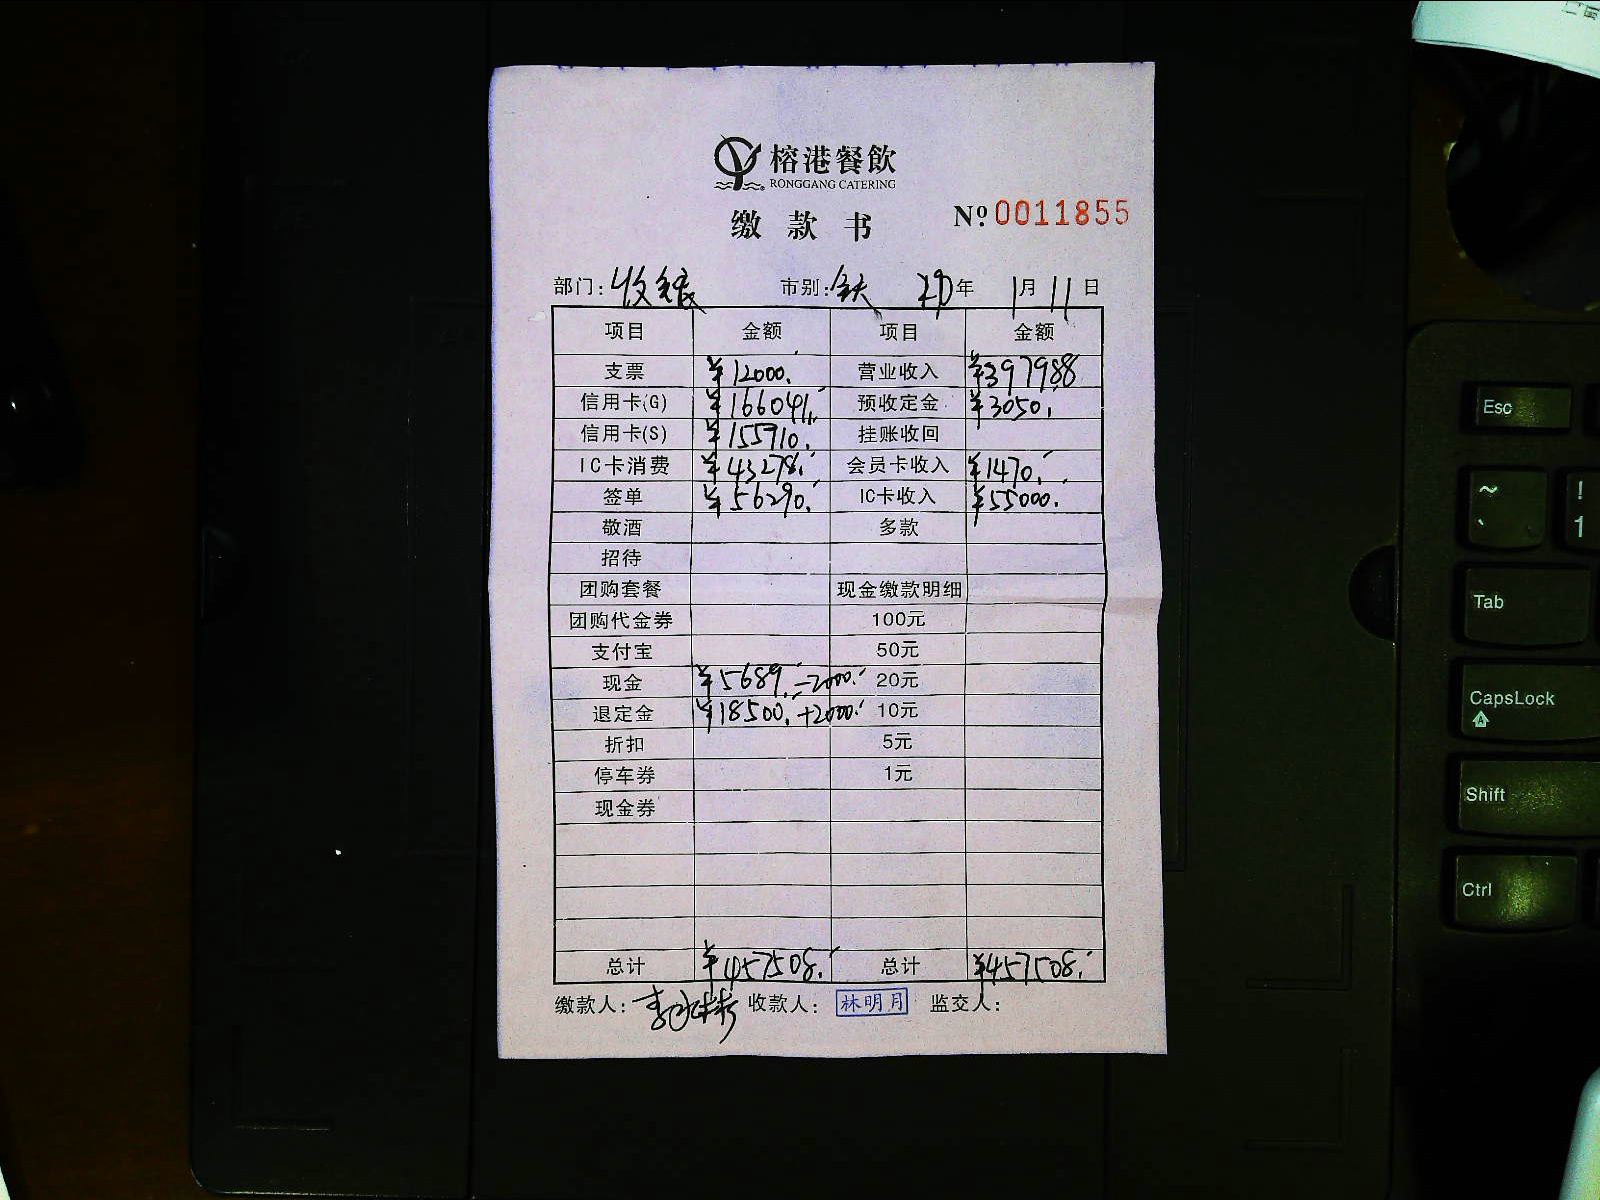 榕港餐飲
RONGGANG CATERING
缴款书
Nº 0011855
部门: 收银 市别: 全天 年 1月11日
项目 金额 项目 金额
支票 ¥12000.- 营业收入 ¥397988
信用卡(G) ¥166041.- 预收定金 ¥3050.-
信用卡(S) ¥155910.- 挂账收回
IC卡消费 ¥43278.- 会员卡收入 ¥1470.-
签单 ¥56290.- IC卡收入 ¥55000.-
敬酒 多款
招待
团购套餐 现金缴款明细
团购代金券 100元
支付宝 50元
现金 ¥5689.- -2000.- 20元
退定金 ¥18500.- +2000.- 10元
折扣 5元
停车券 1元
现金券
总计 ¥457508.- 总计 ¥457508.-
缴款人: 收款人: 林明月 监交人:
Esc
~
`
!
1
Tab
CapsLock
A
Shift
Ctrl